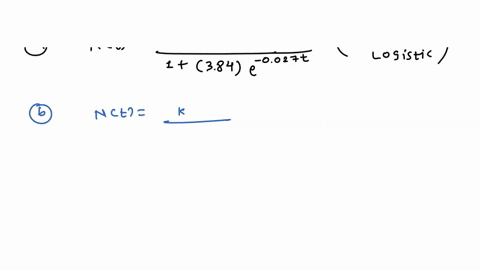 1 + (3.84) e^-0.027t ( Logistic )
(b) N(t) = K